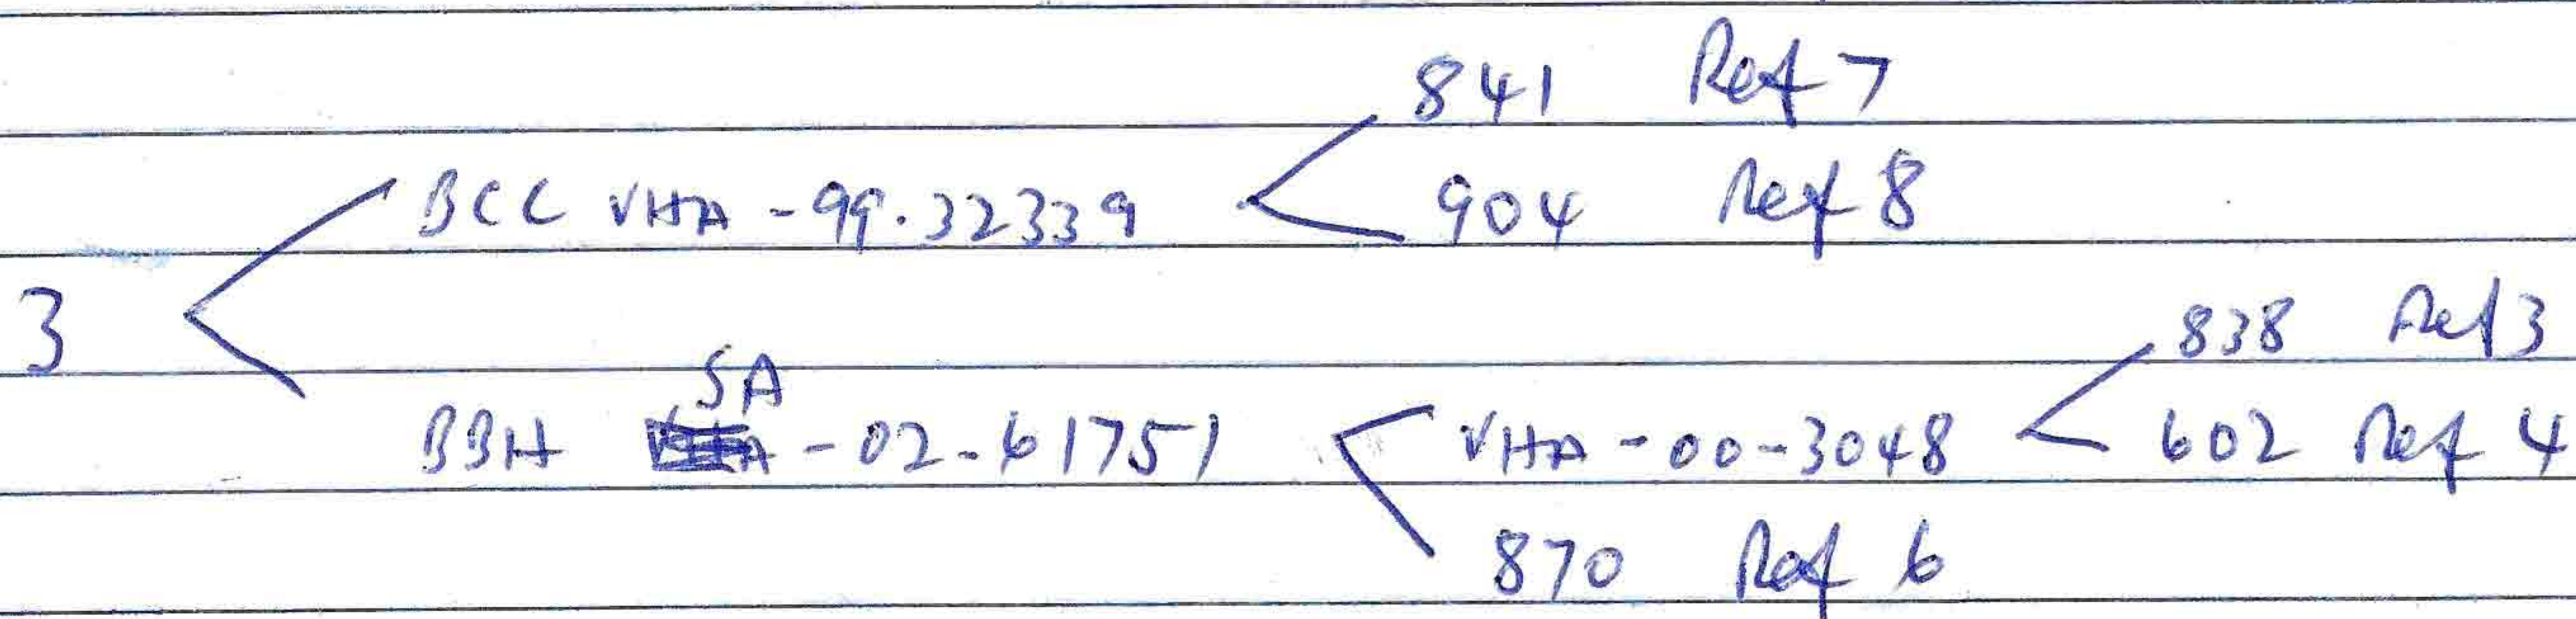 841 Ref 7
BCC VHA - 99.32339 904 Ref 8
3 838 Ref 3
SA
BBH - 02-61751 VHA - 00-3048 602 Ref 4
870 Ref 6